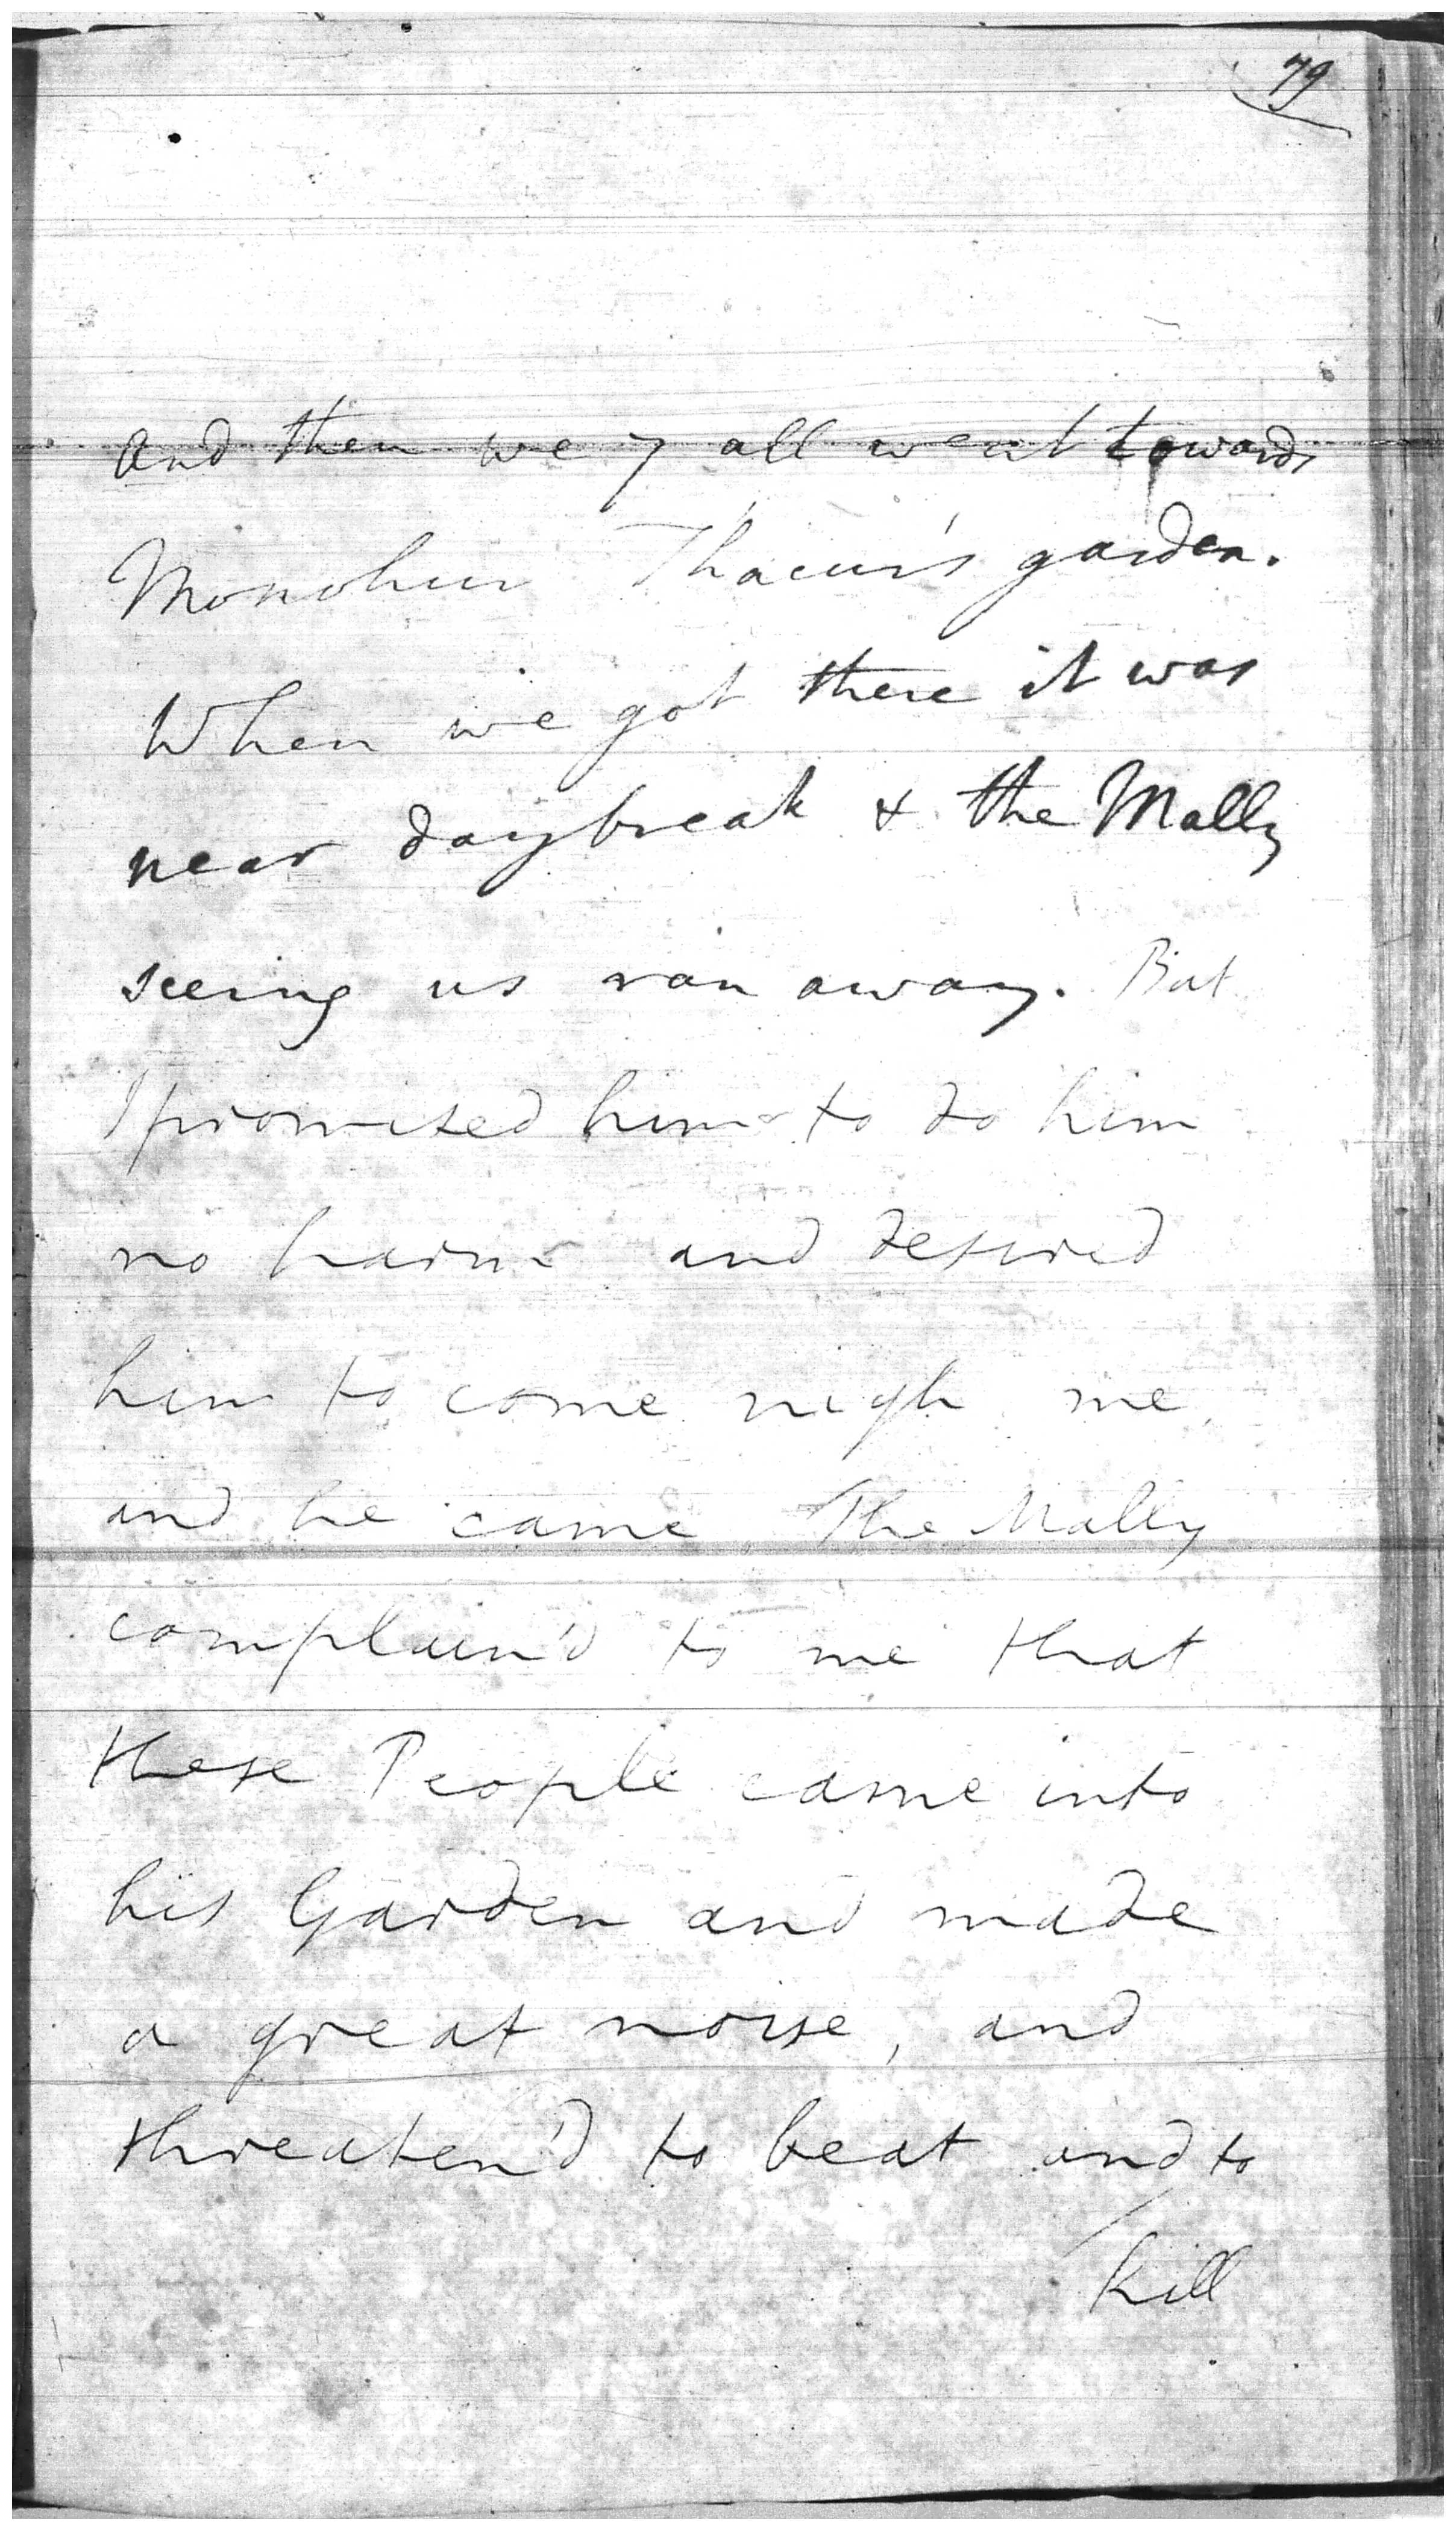 79
and then we 7 all went towards
Monohur Thacur's garden.
When we got there it was
near daybreak & the Mally
seeing us ran away. But
I promised him to do him
no harm and desired
him to come nigh me,
and he came The Mally
complain'd to me that
these People came into
his Garden and made
a great noise, and
threaten'd to beat and to
kill